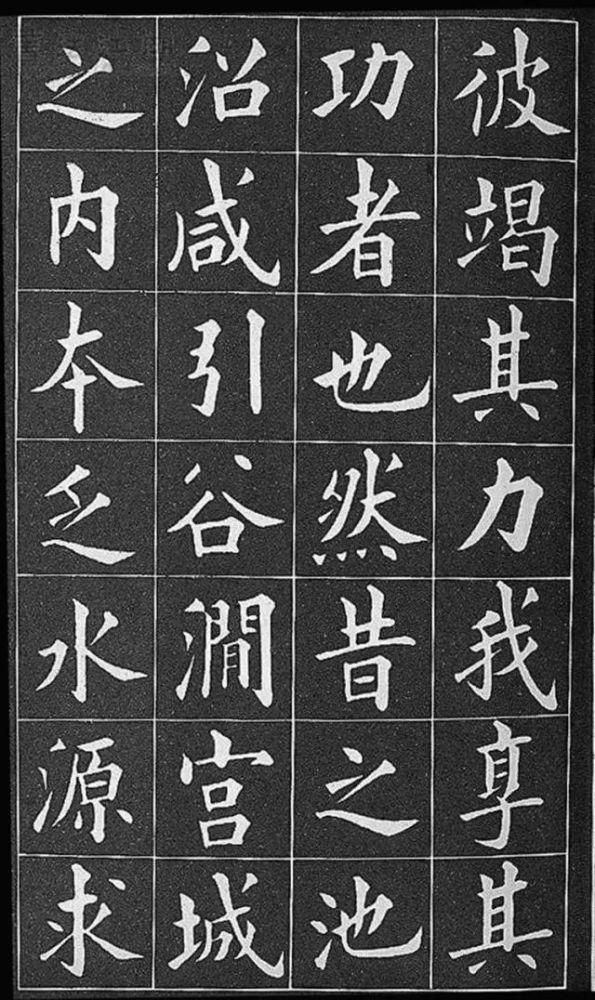 彼竭其力我享其
功者也然昔之池
沼咸引谷澗宫城
之内本乏水源求